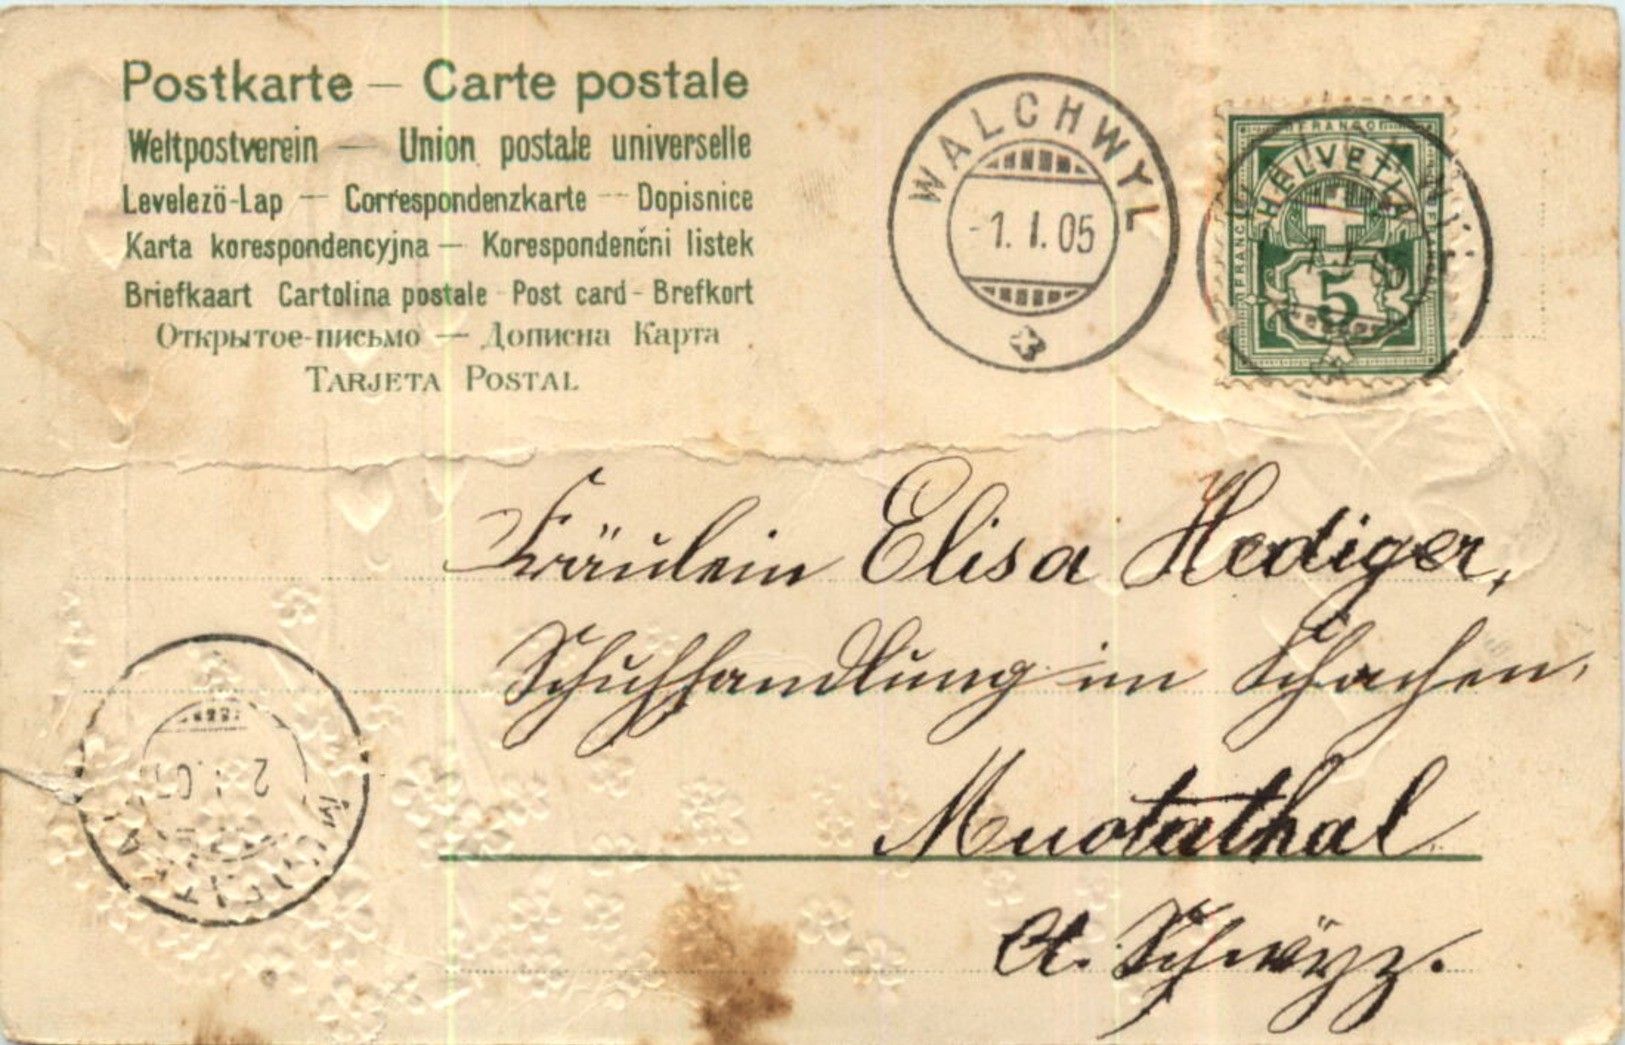 Postkarte – Carte postale
Weltpostverein – Union postale universelle
Levelező-Lap – Correspondenzkarte – Dopisnice
Karta korespondencyjna – Korespondenčni listek
Briefkaart Cartolina postale - Post card - Brefkort
Открытое-письмо – Дописна Карта
TARJETA POSTAL
WALCHWYL
-1. I. 05
FRANCO
HELVETIA
5
Fräulein Elisa Hediger,
Schuhhandlung im Schachen,
Muotathal
Ct. Schwÿz.